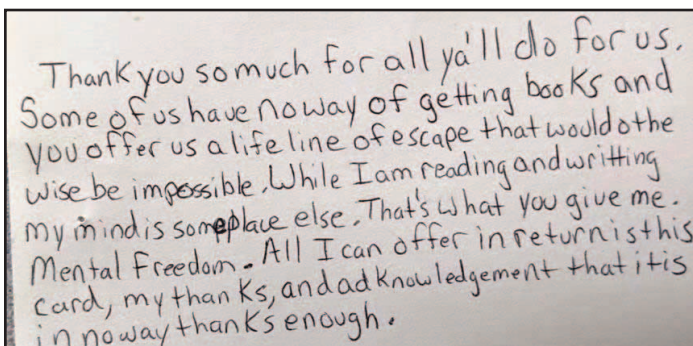 Thank you so much for all ya'll do for us.
Some of us have no way of getting books and
you offer us a life line of escape that would othe
wise be impossible. While I am reading and writting
my mind is someplace else. That's what you give me.
Mental Freedom. All I can offer in return is this
card, my thanks, and adknowledgement that it is
in no way thanks enough.